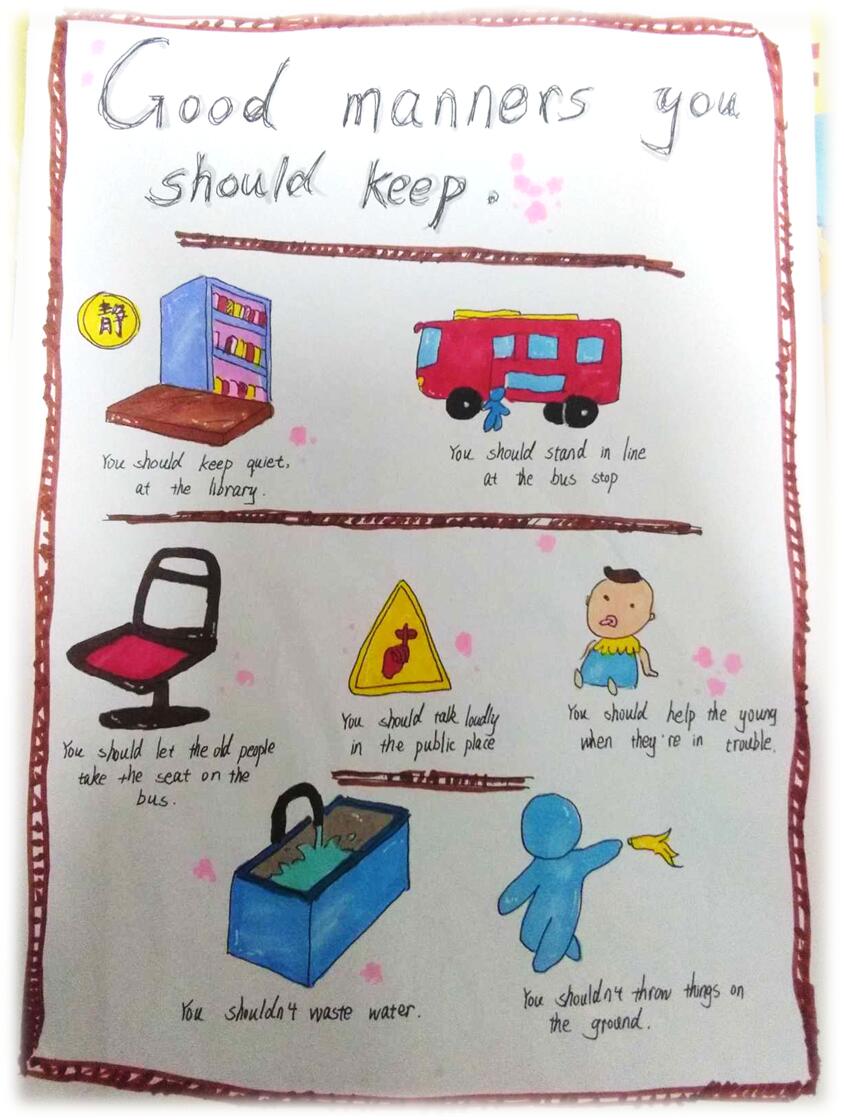 Good manners you
should keep.
静
You should keep quiet,
at the library.
You should stand in line
at the bus stop
You should let the old people
take the seat on the
bus.
You should talk loudly
in the public place
You should help the young
when they're in trouble.
You shouldn't waste water.
You shouldn't throw things on
the ground.